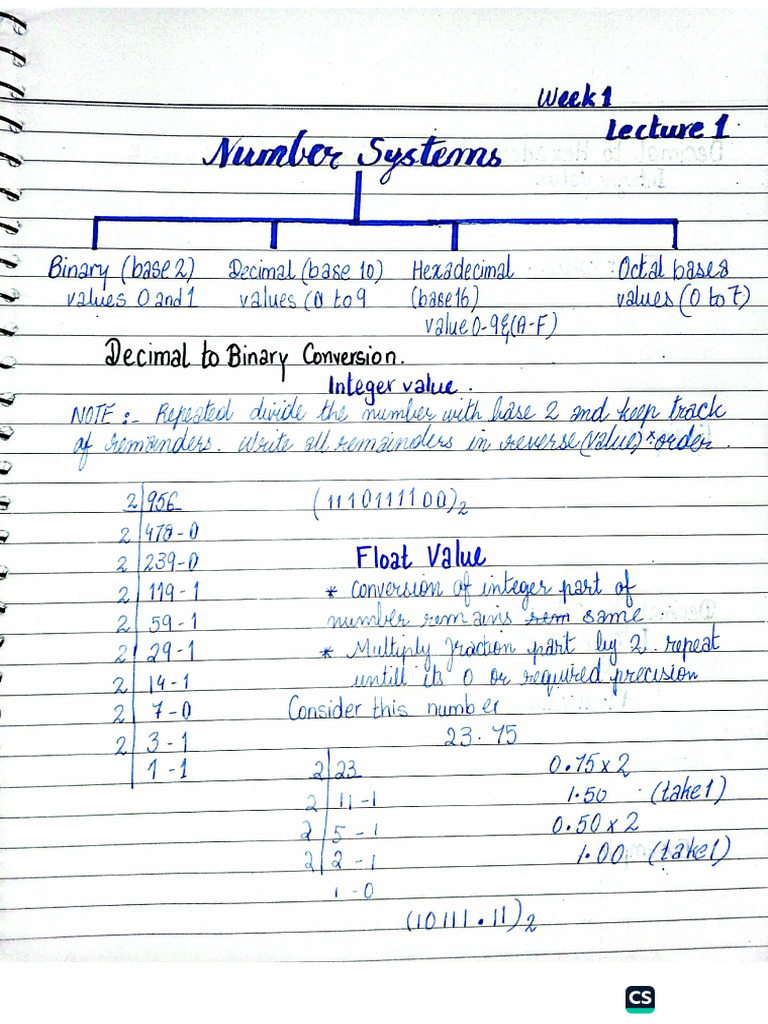 Week 1
Lecture 1
Number Systems
Binary (base 2) Decimal (base 10) Hexadecimal Octal base 8
values 0 and 1 values (0 to 9 (base16) values (0 to 7)
value 0-9 & (A-F)
Decimal to Binary Conversion.
Integer value.
NOTE :- Repeated divide the number with base 2 and keep track
of remainders. Write all remainders in reverse (value)* order.
2 956 (1110111100)2
2 478-0
2 239-0 Float Value
2 119-1 * Conversion of integer part of
2 59-1 number remains rem same
2 29-1 * Multiply fraction part by 2. repeat
2 14-1 untill its 0 or required precision
2 7-0 Consider this number
2 3-1 23.75
1-1 2 23 0.75x2
2 11-1 1.50 (take1)
2 5-1 0.50x2
2 2-1 1.00 (take1)
1-0
(10111.11)2
CS